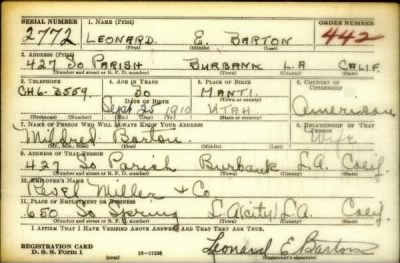 SERIAL NUMBER 1. NAME (Print) ORDER NUMBER
2772 LEONARD E. BARTON 442
(First) (Middle) (Last)
2. ADDRESS (Print)
427 So PARISH BURBANK L.A CALIF
(Number and street or R. F. D. number) (Town) (County) (State)
3. TELEPHONE 4. AGE IN YEARS 5. PLACE OF BIRTH 6. COUNTRY OF CITIZENSHIP
CH6-3559. 30 MANTI.
DATE OF BIRTH (Town or county)
Sept 25 1910 UTAH. American
(Exchange) (Number) (Mo.) (Day) (Yr.) (State or country)
7. NAME OF PERSON WHO WILL ALWAYS KNOW YOUR ADDRESS 8. RELATIONSHIP OF THAT PERSON
Mildred Barton. Wife
(Mr., Mrs., Miss) (First) (Middle) (Last)
9. ADDRESS OF THAT PERSON
427 So Parish Burbank L.A. Calif.
(Number and street or R. F. D. number) (Town) (County) (State)
10. EMPLOYER'S NAME
Miller & Co
11. PLACE OF EMPLOYMENT OR BUSINESS
650 So Spring L.A(city) L.A. Calif.
(Number and street or R. F. D. number) (Town) (County) (State)
I AFFIRM THAT I HAVE VERIFIED ABOVE ANSWERS AND THAT THEY ARE TRUE.
REGISTRATION CARD
D. S. S. FORM 1 (over) Leonard E Barton